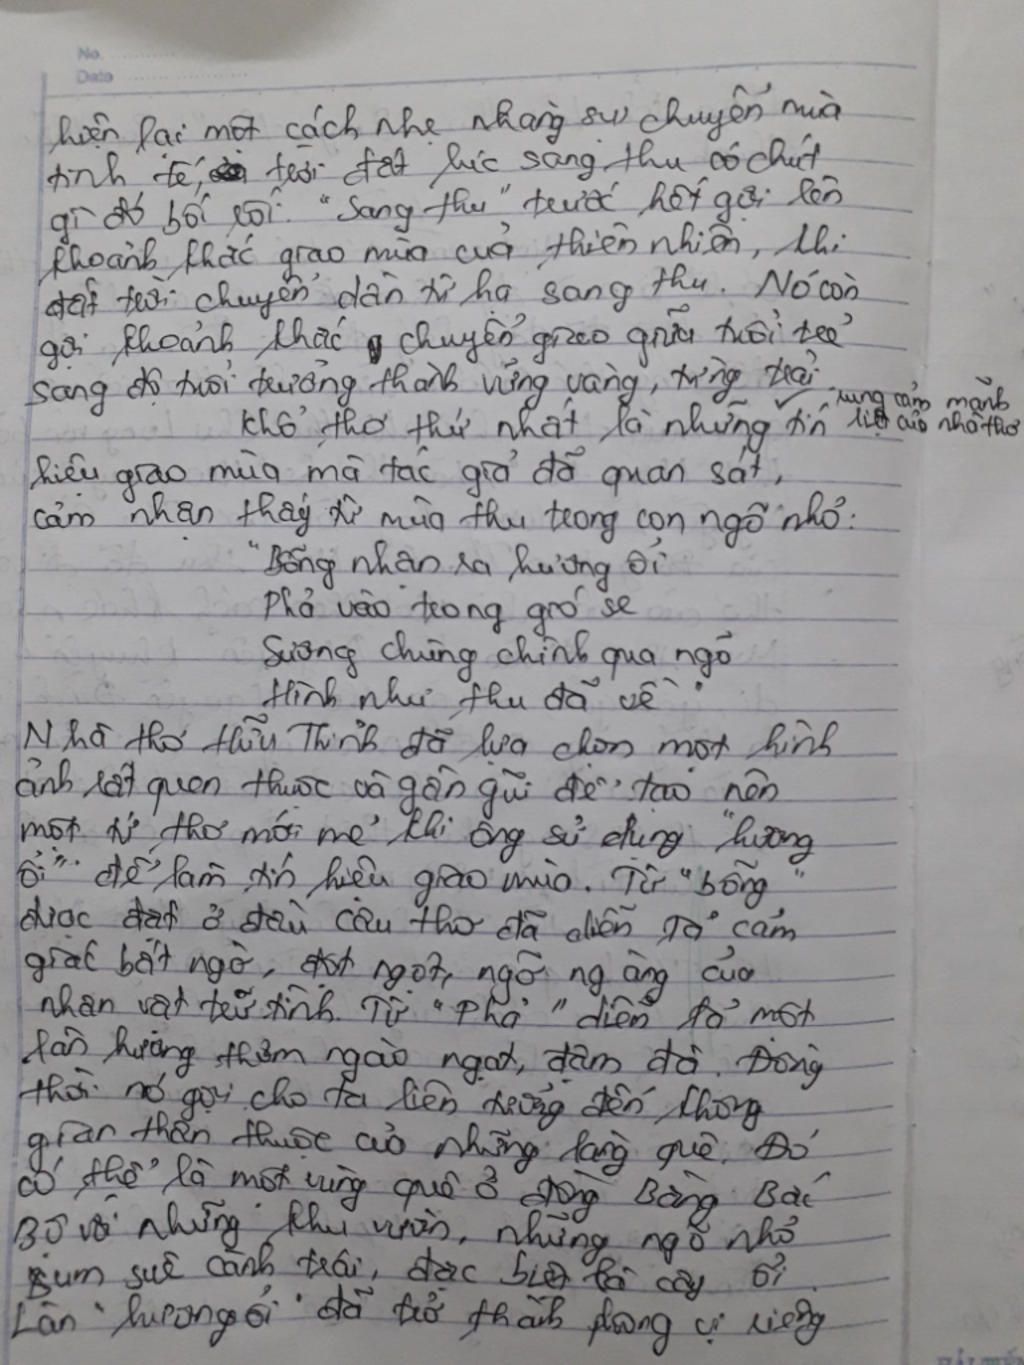 No.
Date
hiện lại một cách nhẹ nhàng sự chuyển mùa
tinh tế, trời đất lúc sang thu có chút
gì đó bối rối. "Sang thu" trước hết gợi lên
khoảnh khắc giao mùa của thiên nhiên, khi
đất trời chuyển dần từ hạ sang thu. Nó còn
gợi khoảnh khắc chuyển giao giữa tuổi trẻ
sang độ tuổi trưởng thành vững vàng, từng trải.
rung cảm mãnh
liệt của nhà thơ
Khổ thơ thứ nhất là những tín
hiệu giao mùa mà tác giả đã quan sát,
cảm nhận thấy từ mùa thu trong con ngõ nhỏ:
"Bỗng nhận ra hương ổi
Phả vào trong gió se
Sương chùng chình qua ngõ
Hình như thu đã về"
Nhà thơ Hữu Thỉnh đã lựa chọn một hình
ảnh rất quen thuộc và gần gũi để tạo nên
một tứ thơ mới mẻ khi ông sử dụng "hương
ổi" để làm tín hiệu giao mùa. Từ "bỗng"
được đặt ở đầu câu thơ đã diễn tả cảm
giác bất ngờ, đột ngột, ngỡ ngàng của
nhân vật trữ tình. Từ "Phả" diễn tả một
làn hương thơm ngào ngạt, đậm đà. Đồng
thời nó gợi cho ta liên tưởng đến không
gian thân thuộc của những làng quê. Đó
có thể là một vùng quê ở đồng Bằng Bắc
Bộ với những khu vườn, những ngõ nhỏ
sum suê cành trái, đặc biệt là cây ổi.
Làn "hương ổi" đã trở thành phong vị riêng